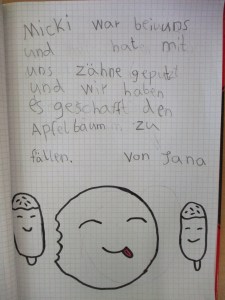 Micki war bei uns
und hat mit
uns zähne geputzt
und wir haben
es geschafft den
Apfelbäum zu
fällen. Von Jana